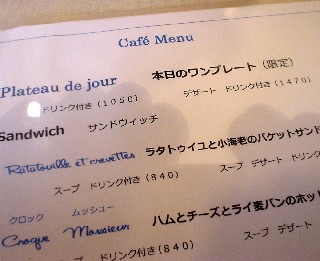 Café Menu
Plateau de jour 本日のワンプレート (限定)
ドリンク付き (1050) デザート ドリンク付き (1470)
Sandwich サンドウィッチ
Ratatouille et crevettes ラタトゥイユと小海老のバケットサンド
スープ ドリンク付き (840) スープ デザート ドリンク
クロック ムッシュー
Croque Monsieur ハムとチーズとライ麦パンのホッ
スープ ドリンク付き (840) スープ デザート